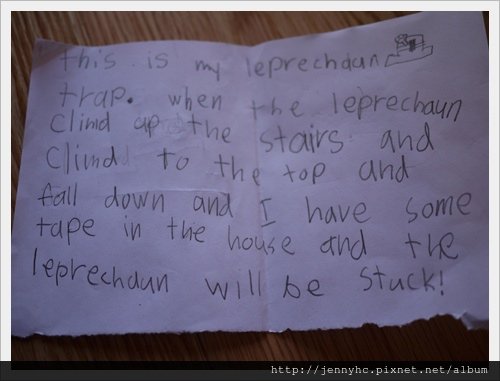 this is my leprechaun
trap. when the leprechaun
Climd up the stairs and
Climd to the top and
fall down and I have some
tape in the house and the
leprechaun will be stuck!
http://jennyhc.pixnet.net/album